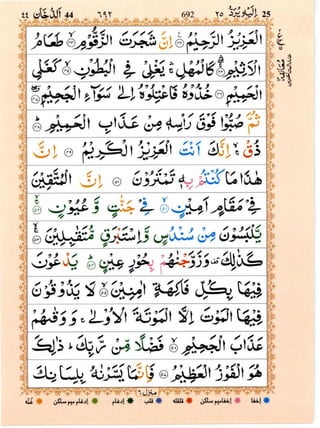 ٤٤ اَلدُّخَان 44 ٦٩٢ 692 ٢٥ اِلَيْهِ يُرَدُّ 25
الْعَزِيْزُ الرَّحِيْمُ ﴿٤٢﴾ اِنَّ شَجَرَتَ الزَّقُّوْمِ ﴿٤٣﴾ طَعَامُ
الْاَثِيْمِ ﴿٤٤﴾ كَالْمُهْلِ ۛ يَغْلِىْ فِى الْبُطُوْنِ ﴿٤٥﴾ كَغَلْىِ
الْحَمِيْمِ ﴿٤٦﴾ خُذُوْهُ فَاعْتِلُوْهُ اِلٰى سَوَآءِ الْجَحِيْمِ ﴿٤٧﴾
ثُمَّ صُبُّوْا فَوْقَ رَاْسِهٖ مِنْ عَذَابِ الْحَمِيْمِ ﴿٤٨﴾
ذُقْ ۙ اِنَّكَ اَنْتَ الْعَزِيْزُ الْكَرِيْمُ ﴿٤٩﴾ اِنَّ
هٰذَا مَا كُنْتُمْ بِهٖ تَمْتَرُوْنَ ﴿٥٠﴾ اِنَّ الْمُتَّقِيْنَ
فِىْ مَقَامٍ اَمِيْنٍ ﴿٥١﴾ فِىْ جَنّٰتٍ وَّ عُيُوْنٍ ﴿٥٢﴾
يَّلْبَسُوْنَ مِنْ سُنْدُسٍ وَّاِسْتَبْرَقٍ مُّتَقٰبِلِيْنَ ﴿٥٣﴾
كَذٰلِكَ وَزَوَّجْنٰهُمْ بِحُوْرٍ عِيْنٍ ﴿٥٤﴾ يَدْعُوْنَ
فِيْهَا بِكُلِّ فَاكِهَةٍ اٰمِنِيْنَ ﴿٥٥﴾ لَا يَذُوْقُوْنَ
فِيْهَا الْمَوْتَ اِلَّا الْمَوْتَةَ الْاُوْلٰى ۚ وَ وَقٰىهُمْ
عَذَابَ الْجَحِيْمِ ﴿٥٦﴾ فَضْلًا مِّنْ رَّبِّكَ ؕ ذٰلِكَ
هُوَ الْفَوْزُ الْعَظِيْمُ ﴿٥٧﴾ فَاِنَّمَا يَسَّرْنٰهُ بِلِسَانِكَ
منزل ٦
اخفا اخفا میم ساکن قلقلہ قلب ادغام ادغام میم ساکن غنّہ